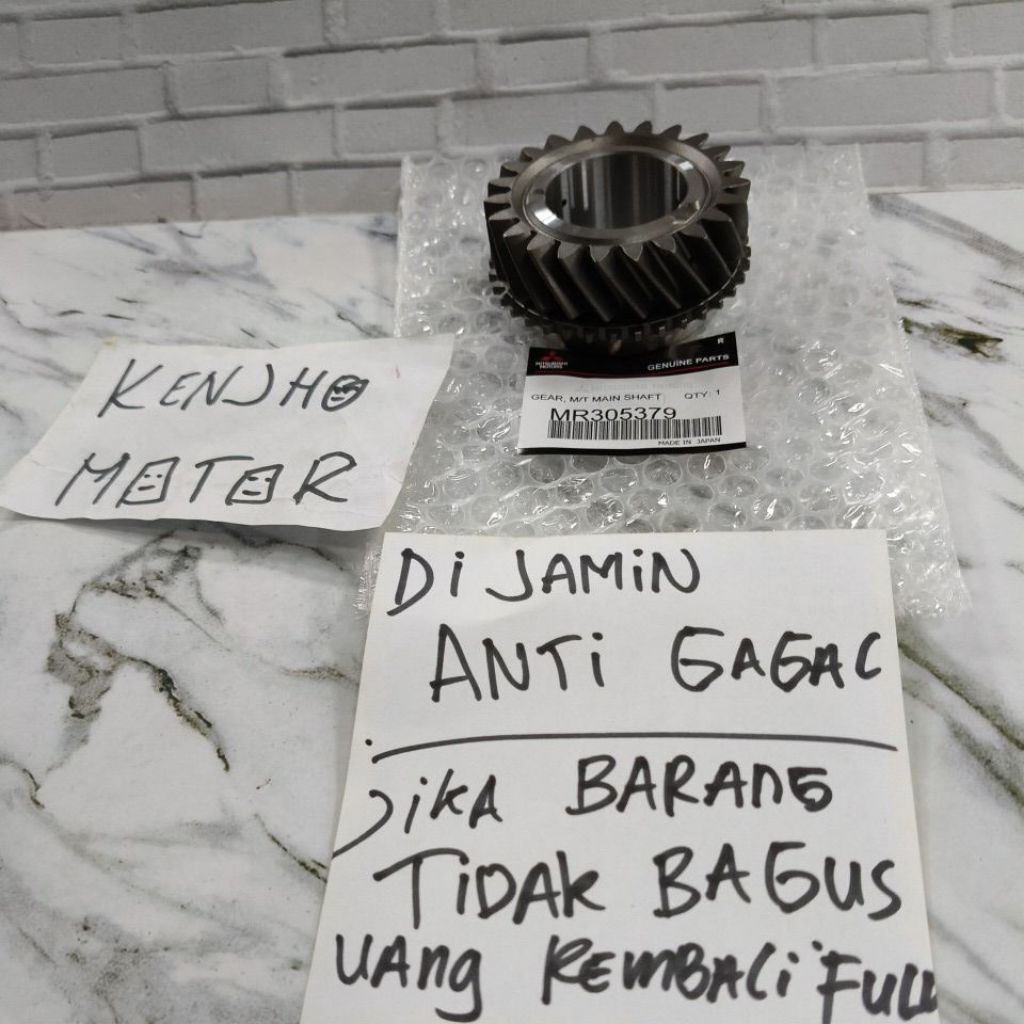 R
MITSUBISHI
MOTORS
GENUINE PARTS
GEAR, M/T MAIN SHAFT QTY 1
MR305379
MADE IN JAPAN
KENJHO
MOTOR
Di JAMiN
ANTi GAGAL
JiKA BARAnG
TiDAK BAGUS
UAng KEMBALi FULL